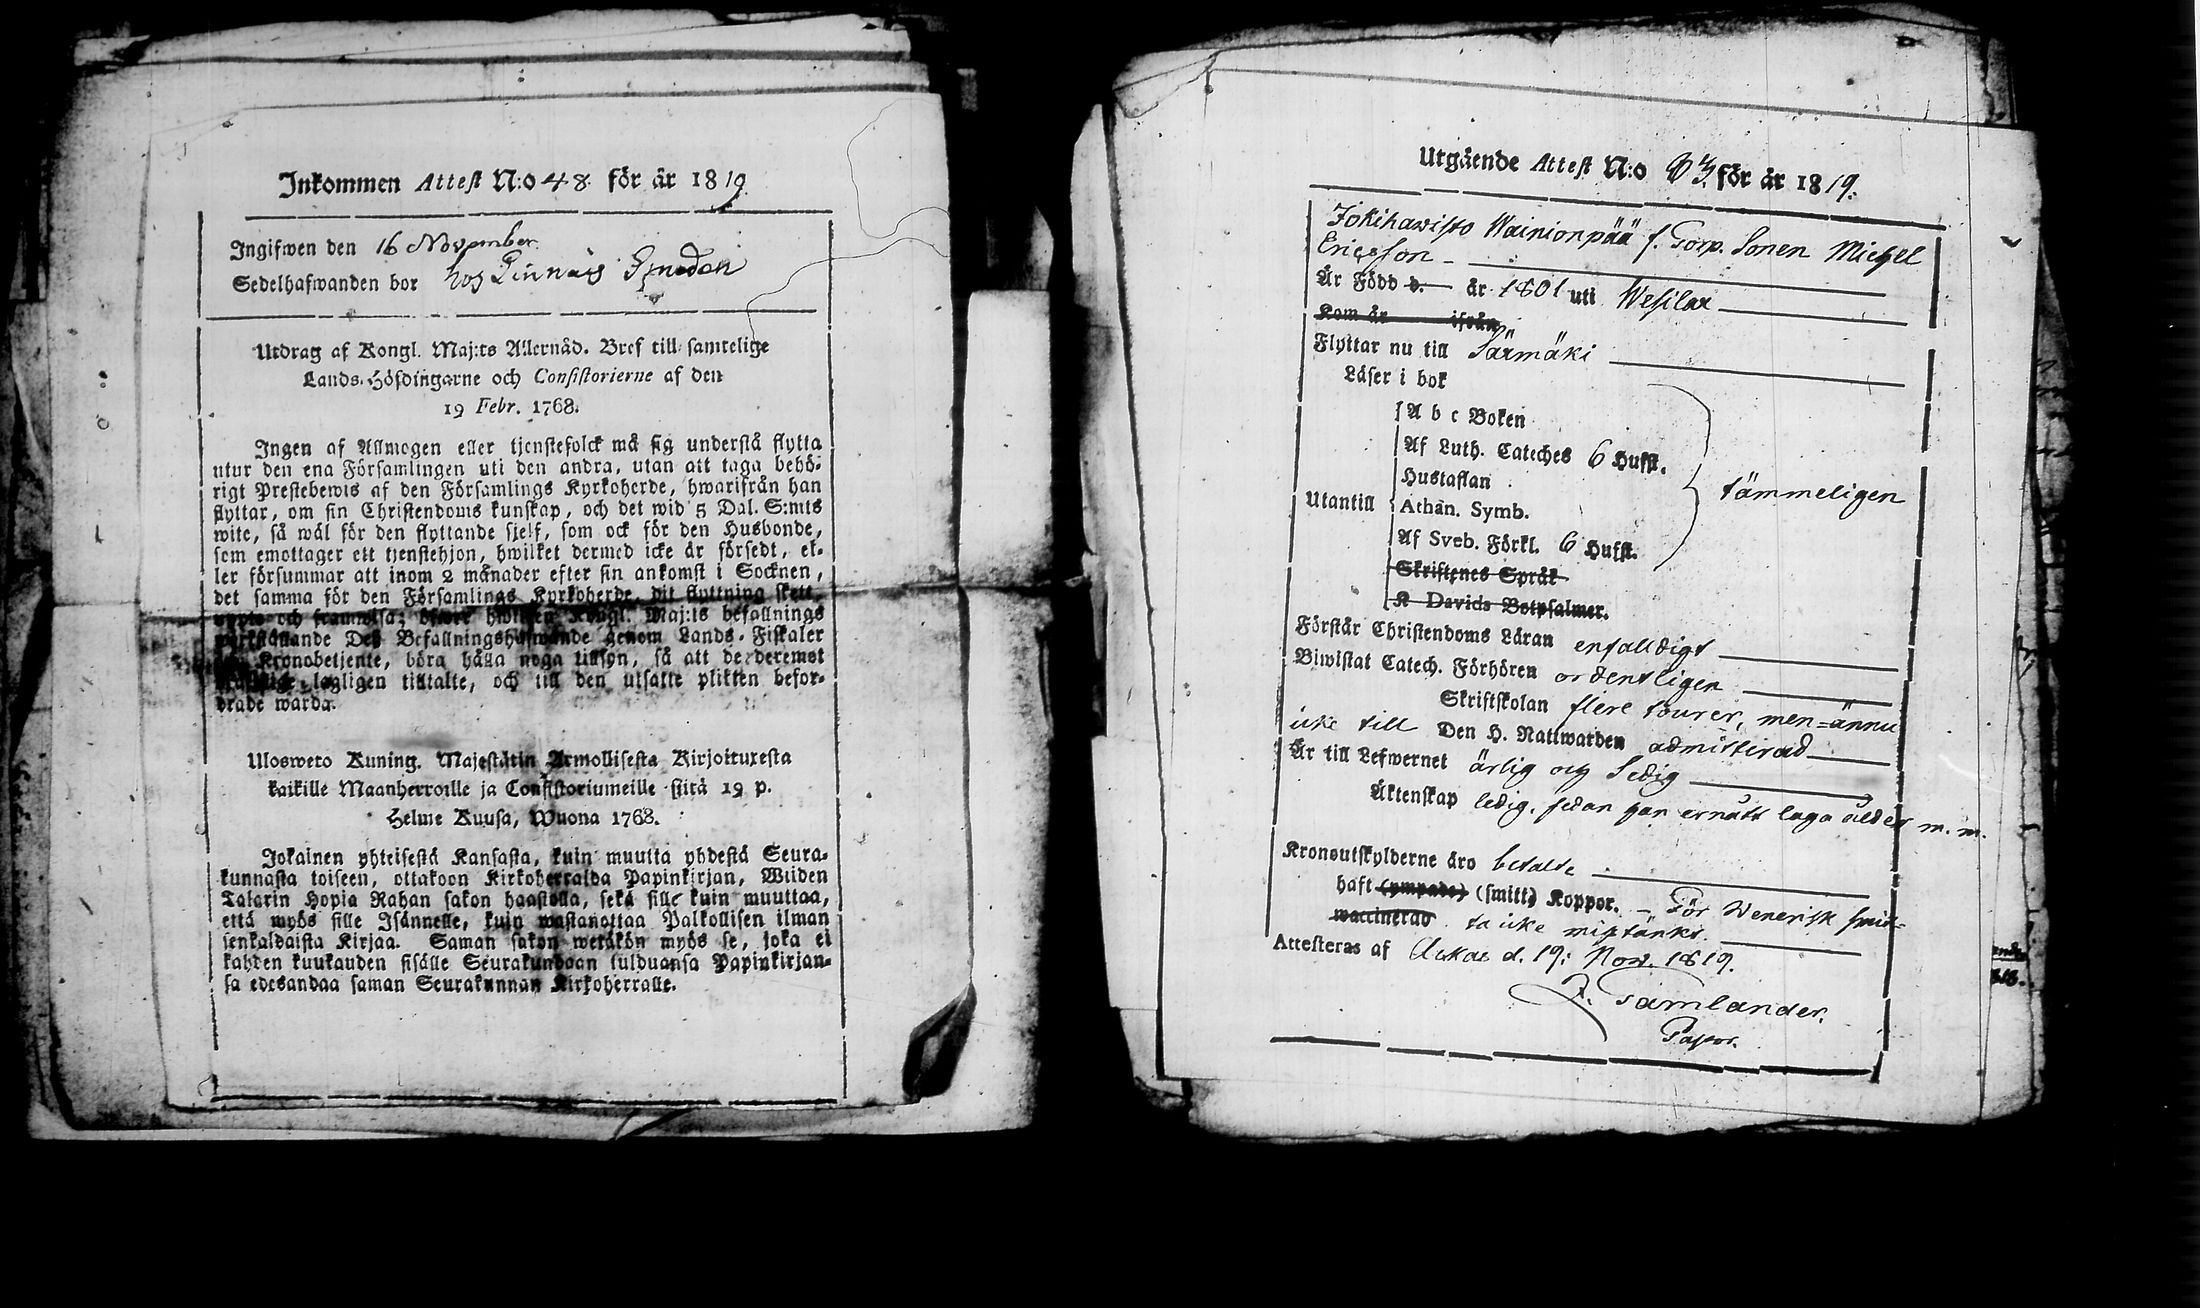 Inkommen Attest N:o 48. för år 1819
Ingifwen den 16 November.
Sedelhafwanden bor hos
Utdrag af Kongl. Maj:ts Allernåd. Bref till samtelige
Lands-Höfdingarne och Consistorierne af den
19 Febr. 1768.
Ingen af Allmogen eller tjenstefolck må sig understå flytta
utur den ena Församlingen uti den andra, utan att taga behö-
rigt Prestebewis af den Församlings Kyrkoherde, hwarifrån han
flyttar, om sin Christendoms kunskap, och det wid 5 Dal. S:mts
wite, så wäl för den flyttande sjelf, som ock för den Husbonde,
som emottager ett tjenstehjon, hwilket dermed icke är försedt, el-
ler försummar att inom 2 månader efter sin ankomst i Socknen,
det samma för den Församlings Kyrkoherde, dit flyttning skett,
och framwisa; Kongl. Maj:ts befallnings
Des Befallningshafwande genom Lands-Fiskaler
Kronobetjente, böra hålla noga tillsyn, så att de deremot
lagligen tilltalte, och till den utsatte plikten befor-
drade warda.
Ulosweto Kuning. Majestätin Armollisesta Kirjoituxesta
kaikille Maanherroille ja Consistoriumeille siitä 19 p.
Helme Kuusa, Wuona 1768.
Jokainen yhteisestä Kansasta, kuin muutta yhdestä Seura-
kunnasta toiseen, ottakoon Kirkoherralda Papinkirjan, Wiiden
Talarin Hopia Rahan sakon haastolla, sekä sille kuin muuttaa,
että myös sille Isännelle, kuin wastanottaa Palkollisen ilman
senkaldaista Kirjaa. Saman sakon wetäkön myös se, joka ei
kahden kuukauden sisälle Seurakundaan tulduansa Papinkirjan-
sa edesandaa saman Seurakunnan Kirkoherralle.
Utgående Attest N:o för år 1819.
Jokihawisto Wainionpää f. Torp. Sonen Michel
Ericsson
Är Född d. år 1801 uti Wesilax
Kom år ifrån
Flyttar nu till Särmäki
Läser i bok
A b c Boken
Af Luth. Cateches 6 Hufst.
Hustaflan
tämmeligen
Utantill Athan. Symb.
Af Sveb. Förkl. 6 Hufst.
Skriftenes Språk
K Davids Botpsalmer.
Förstår Christendoms Läran enfalldigt
Biwistat Catech. Förhören ordentligen
Skriftskolan flere tourer, men ännu
icke till Den H. Nattwarden admitterad
Är till Lefwernet ärlig och Sedig
Äktenskap ledig, sedan han ernått laga ålder m. m.
Kronoutskylderne äro betalte
haft (ympade) (smitt) Koppor. – För Wenerisk smit-
waccinerad ta icke misstänkt.
Attesteras af Ackas d. 19: Nov. 1819.
Tamlander.
Pastor.